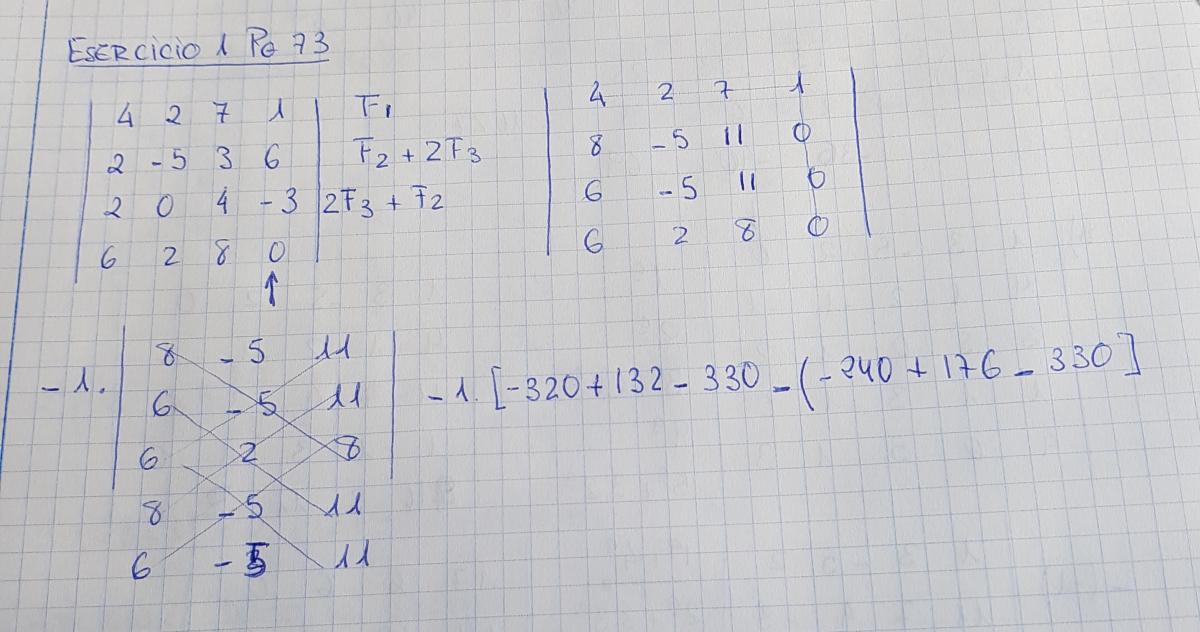 ESERCICIO 1 PG 73
4 2 7 1 F1
2 -5 3 6 F2 + 2F3
2 0 4 -3 2F3 + F2
6 2 8 0
↑
4 2 7 1
8 -5 11 0
6 -5 11 0
6 2 8 0
-1. 8 -5 11
6 -5 11
6 2 8
8 -5 11
6 -5 11
-1. [-320 + 132 - 330 - (-240 + 176 - 330]